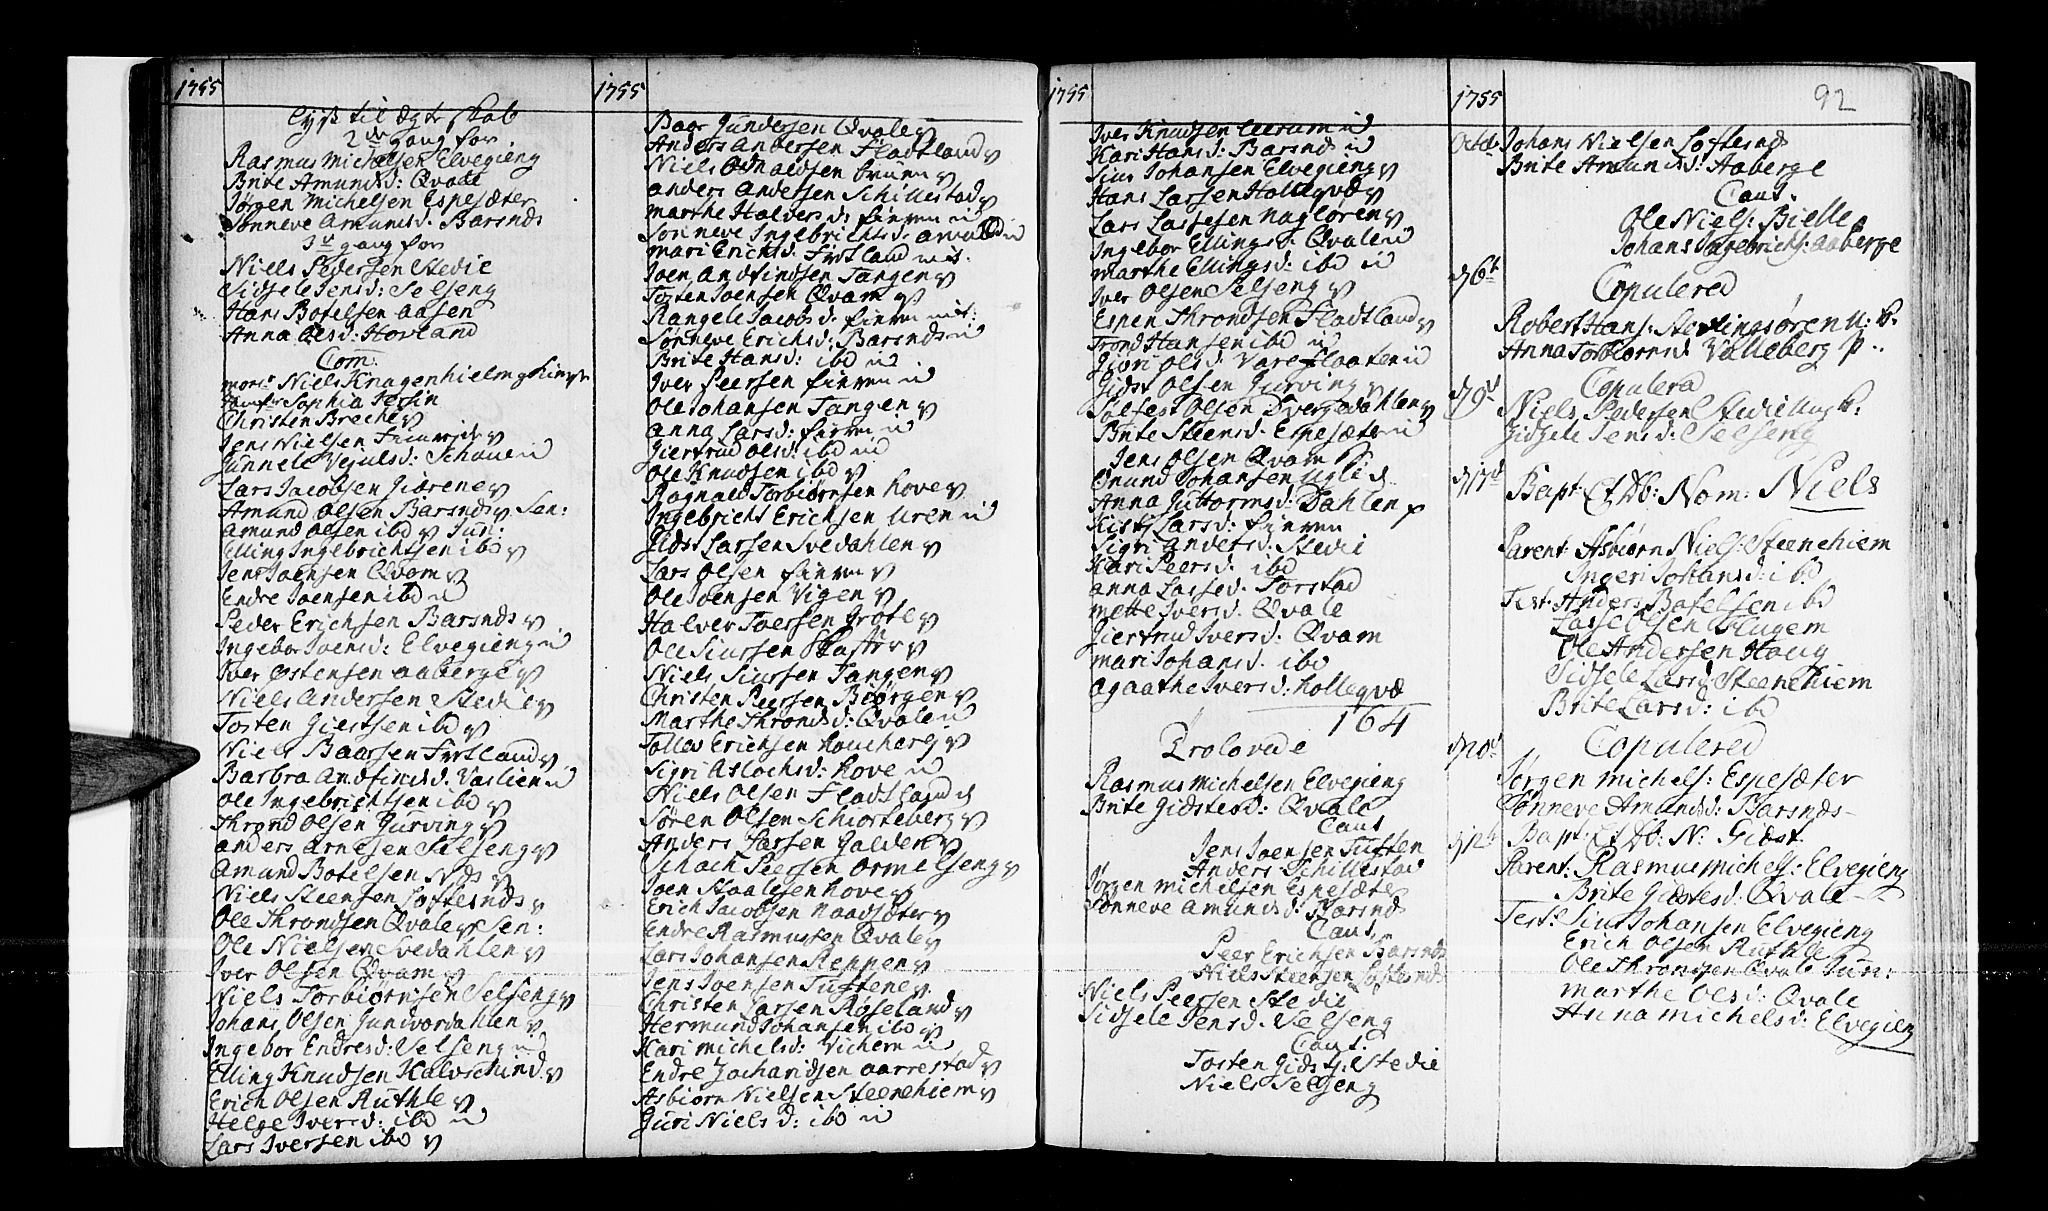 1755
Lyst til Ægteskab
2de gang for
Rasmus Michelsen Elvegieng
Brite Amundsd: Qvale
Jørgen Michelsen Espesæter
Sønneve Amunsd. Barsnds
3die gang for
Niels Pedersen Stedie
Sidsele Jensd: Selseng
Hans Botelsen Aasen
Anna Olsd: Hovland
Com:
Niels Knagenhielm
Sophia
Christen Breche
Jens Nielsen
Gunnele Vejulsd: Schouen
Lars Jacobsen Giørene
Amund Olsen Barsnds Sen:
Amund Olsen ibd Jun:
Elling Ingebrichtsen ibd
Jens Joensen Qvam
Endre Joensen ibd
Peder Erichsen Barsnds
Ingebor Joensd: Elvegieng
Iver Østensen Aaberge
Niels Andersen Stedie
Tosten Giertsen ibd
Niels Baarsen Frstland
Barbra Andfinds: Vaslien
Ole Ingebrichtsen ibd
Thrond Olsen Gurving
Anders Arnesen Selseng
Amund Botelsen Nds
Niels Steensen Loftesnds
Ole Throndsen Qvale Sen:
Ole Nielsen Svedahlen
Iver Olsen Qvam
Niels Torbiørnsen Selseng
Johans Olsen Gundvordahlen
Ingebor Endresd: Selseng
Elling Knudsen Kalvschind
Erich Olsen Ruthle
Helge Iversd: ibd
Lars Iversen ibd
1755
Baar Gundersen Qvale
Anders Andersen Fladtland
Niels Osvaldsen Bruen
Anders Andersen Schillestad
Marthe Halversd: Firven
Sønneve Ingebrichtsd.
Mari Erichsd: Frstland
Joen Andfindsen Tangen
Tosten Joensen Qvam
Rangele Jacobsd. Firven
Sønneve Erichsd: Barsnds
Brite Hansd: ibd
Iver Peersen Firven
Ole Johansen Tangen
Anna Larsd: Firven
Giertrud Olsd: ibd
Ole Knudsen ibd
Ragnald Torbiørnsen Hove
Ingebricht Erichsen Uren
Gidst Larsen Svedahlen
Lars Olsen Firven
Ole Joensen Vigen
Halver Joersen Grote
Ole Siursen Skaftør
Niels Siursen Tangen
Christen Peersen Biørgen
Marthe Thronsd: Qvale
Tollog Erichsen Houeberg
Sigri Aslochsd: Hove
Niels Olsen Fladtland
Søren Olsen Schiorteberg
Anders Larsen Galden
Schach Peersen Ormelseng
Joen Staalesen Hove
Erich Jacobsen Naadsæter
Endre Rasmussen Qvale
Lars Johansen Reppen
Jens Joensen Tuftene
Christen Larsen Røseland
Hermund Johansen ibd
Kari Michelsd: Vichem
Endre Zachariasen Aarrestad
Asbiørn Nielsen Steenehiem
Guri Nielsd: ibd
1755
Iver Knudsen Uurum
Kari Hansd: Barsnd
Siur Johansen Elvegieng
Hans Larsen Hollegvæ
Lars Larsen Nagløren
Ingebor Ellingsd. Qvale
Marthe Ellingsd: ibd
Iver Olsen Selseng
Espen Throndsen Fladtland
Trond Hansen ibd
Giøri Olsd: Vareflaaten
Gidst Olsen Gurving
Solfest Olsen Dvergedahlen
Brite Steensd. Espesæter
Jens Olsen Qvam
Omund Johansen Uglie
Anna Guttormsd: Dahlen
Kisti Larsd: Firven
Sigri Andersd: Stedie
Kari Peersd: ibd
Anna Larsd. Torstad
Mette Iversd. Qvale
Giertrud Iversd: Qvam
Mari Johansd. ibd
Agaathe Iversd: Hollegvæ
164
Trolovede
Rasmus Michelsen Elvegieng
Brite Gidstesd: Qvale
Caut
Jens Joensen Tuften
Anders Schillestad
Jørgen Michelsen Espesæter
Sønneve Amunsd: Barsnds
Caut
Peer Erichsen Barsnds
Niels Steensen Loftesnds
Niels Peersen Stedie
Sidsele Jensd. Selseng
Caut.
Tosten Gidstes. Stedie
Niels Selseng
1755 92
Octbr Johans Nielsen Loftesnds
Brite Amundsd: Aaberge
Caut.
Ole Niels: Bielle
Johans Ingebrichts: Aaberge
d 6t Copulered
Robert Hans: Stedingsøren U: K:
Anna Torbiørnsd. Valleberg P.
d 9d Copulera
Niels Pedersen Stedie Ung K:
Zidsele Jensd: Selseng
Bapt: Et Db: Nom: Niels
Parent: Asbiørn Niels: Steenehiem
Ingeri Johansd: ibd
Test: Anders Botelsen ibd
Lasse Olsen Flugem
Ole Andersen Haug
Sidsele Larsd: Steenehiem
Brite Larsd: ibd
Copulered
Jørgen Michels: Espesæter
Sønneve Amundsd: Barsnds
d 12t Bapt: Et Db: N: Gidst.
Parent: Rasmus Michels: Elvegieng
Brite Gidstesd: Qvale
Test: Siur Johansen Elvegieng
Erich Olsen Ruthle
Ole Thronsen Qvale Jun:
Marthe Olsd: Qvale
Anna Michelsd: Elvegieng